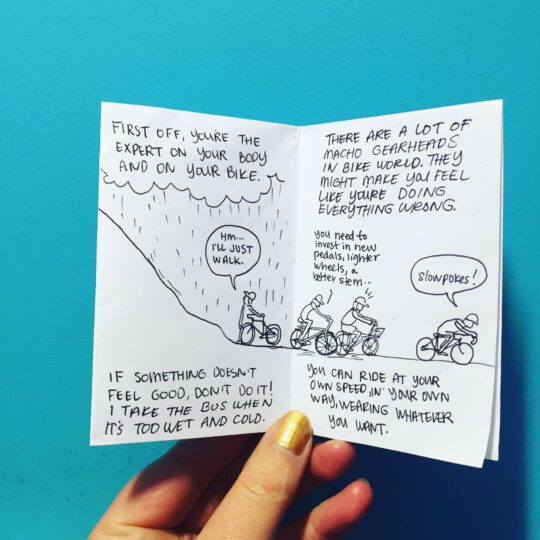 FIRST OFF, YOU'RE THE
EXPERT ON YOUR BODY
AND ON YOUR BIKE.
Hm...
I'LL JUST
WALK.
IF SOMETHING DOESN'T
FEEL GOOD, DON'T DO IT!
I TAKE THE BUS WHEN
IT'S TOO WET AND COLD.
THERE ARE A LOT OF
MACHO GEARHEADS
IN BIKE WORLD. THEY
MIGHT MAKE YOU FEEL
LIKE YOU'RE DOING
EVERYTHING WRONG.
you need to
invest in new
pedals, lighter
wheels, a
better stem..
slowpokes!
YOU CAN RIDE AT YOUR
OWN SPEED, IN YOUR OWN
WAY, WEARING WHATEVER
YOU WANT.